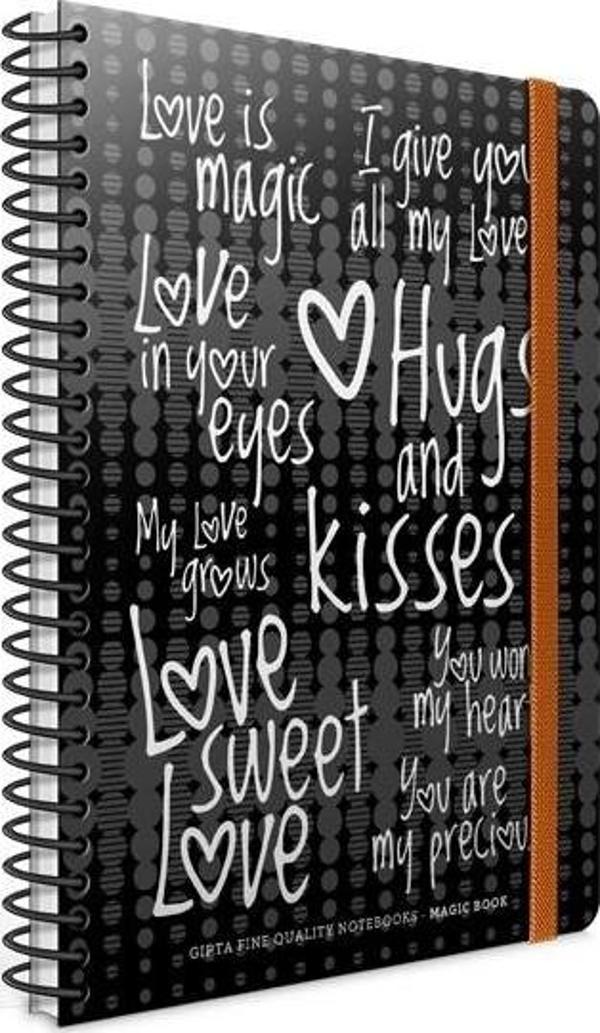 Love is
magic
I give you
all my Love
Love
in your
eyes
Hugs
and
kisses
My Love
grows
Love
sweet
Love
You won
my hear
You are
my preciou
GIPTA FINE QUALITY NOTEBOOKS - MAGIC BOOK